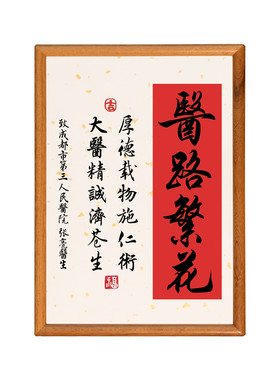 醫路繁花
厚德載物施仁術
大醫精誠濟蒼生
致成都市第三人民醫院 張亮醫生
吉
福